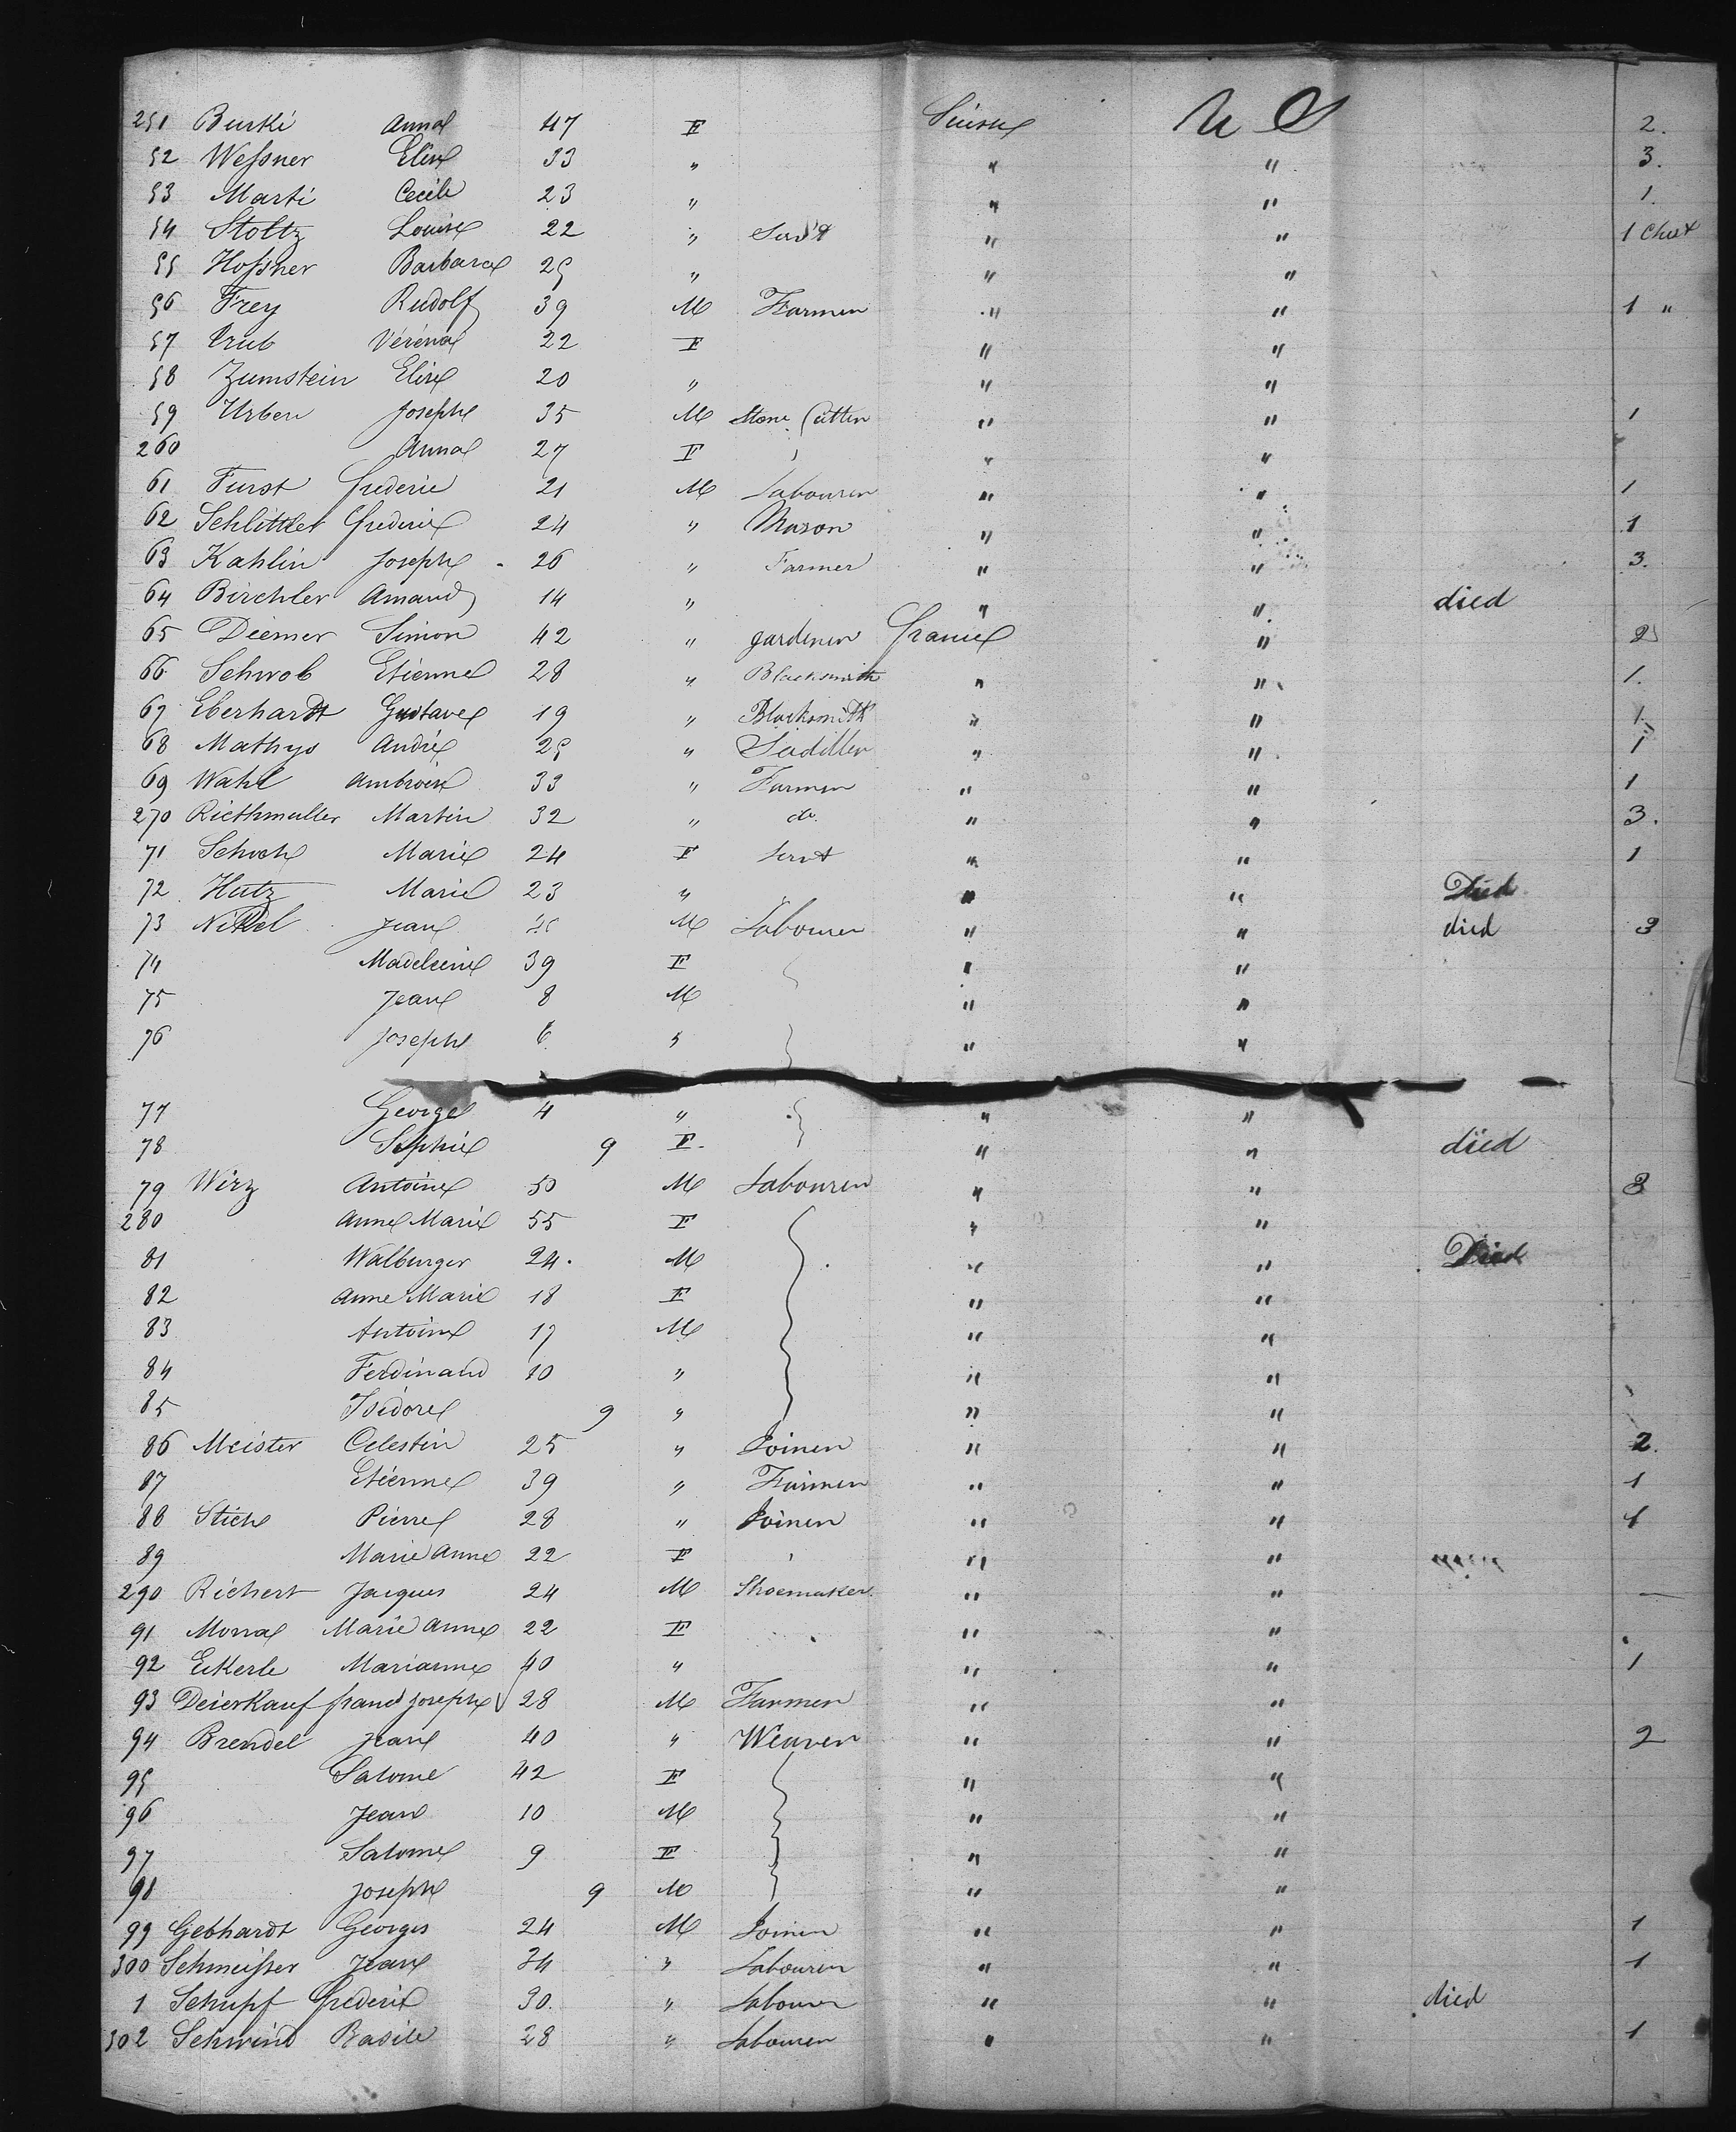 251 Burki Anna 47 F Suisse U S 2.
52 Weſsner Elise 33 " " " 3.
53 Marti Cecile 23 " " " 1.
54 Stoltz Louise 22 " Serv't " " 1 Chest
55 Hoſsner Barbara 25 " " "
56 Frey Rudolf 39 M Farmer " " 1 "
57 Trub Véréna 22 F " "
58 Zumstein Elise 20 " " "
59 Urben Joseph 35 M Stone Cutter " " 1
260 Anna 27 F " "
61 Furst Frederic 21 M Labourer " " 1
62 Schlittler Frederic 24 " Mason " " 1
63 Kahlin Joseph 26 " Farmer " " 3.
64 Birchler Amand 14 " " " died
65 Diemer Simon 42 " gardener France " 2
66 Schwob Etienne 28 " Blacksmith " " 1.
67 Eberhardt Gustave 19 " Blacksmith " " 1.
68 Mathys André 25 " Sadller " " 1
69 Wahl Ambroise 33 " Farmer " " 1
270 Riethmuller Martin 32 " do. " " 3.
71 Schoch Marie 24 F Servt " " 1
72 Hutz Marie 23 " " " Died
73 Jean M Labourer " " died 3
74 Madeleine 39 F " "
75 Jean 8 M " "
76 Joseph 6 " " "
77 George 4 " " "
78 Sophie 9 F " " died
79 Wirz Antoine 50 M Labourer " " 3
280 Anne Marie 55 F " "
81 Walburger 24. M " " Died
82 Anne Marie 18 F " "
83 Antoine 17 M " "
84 Ferdinand 10 " " "
85 Isidore 9 " " "
86 Meister Celestin 25 " Joiner " " 2.
87 Etienne 39 " Farmer " " 1
88 Stich Pierre 28 " Joiner " " 1
89 Marie Anne 22 F " "
290 Richert Jacques 24 M Shoemaker " " —
91 Morra Marie Anne 22 F " "
92 Eckerle Marianne 40 " " " 1
93 Deierkauf franc Joseph 28 M Farmer " "
94 Brendel Jean 40 " Weaver " " 2
95 Salome 42 F " "
96 Jean 10 M " "
97 Salome 9 F " "
98 Joseph 9 M " "
99 Gebhardt Georges 24 M Joiner " " 1
300 Schmeiſser Jean 34 " Labourer " " 1
1 Schupf Frederic 30. " Labourer " " died
302 Schwind Basile 28 " Labourer " " 1